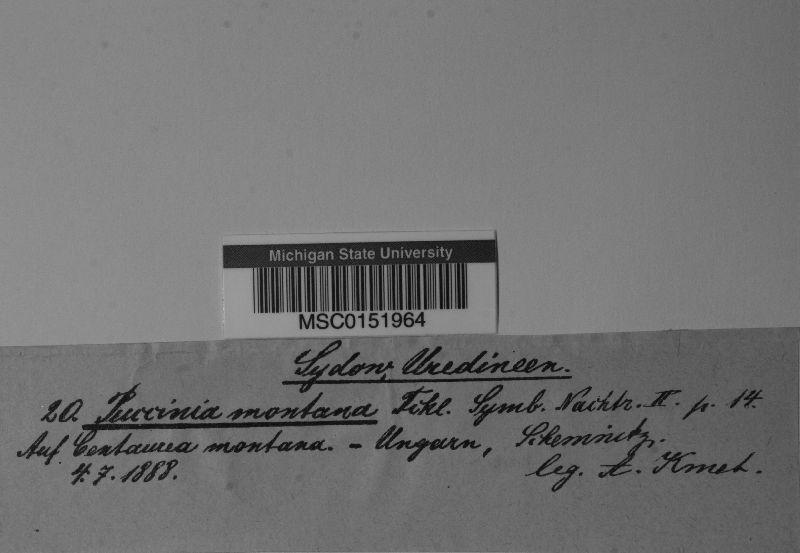 Michigan State University
MSC0151964
Sydow, Uredineen.
20. Puccinia montana Fckl. Symb. Nachtr. II. p. 14.
Auf Centaurea montana. - Ungarn, Schemnitz.
4.7.1888.
leg. A. Kmet.